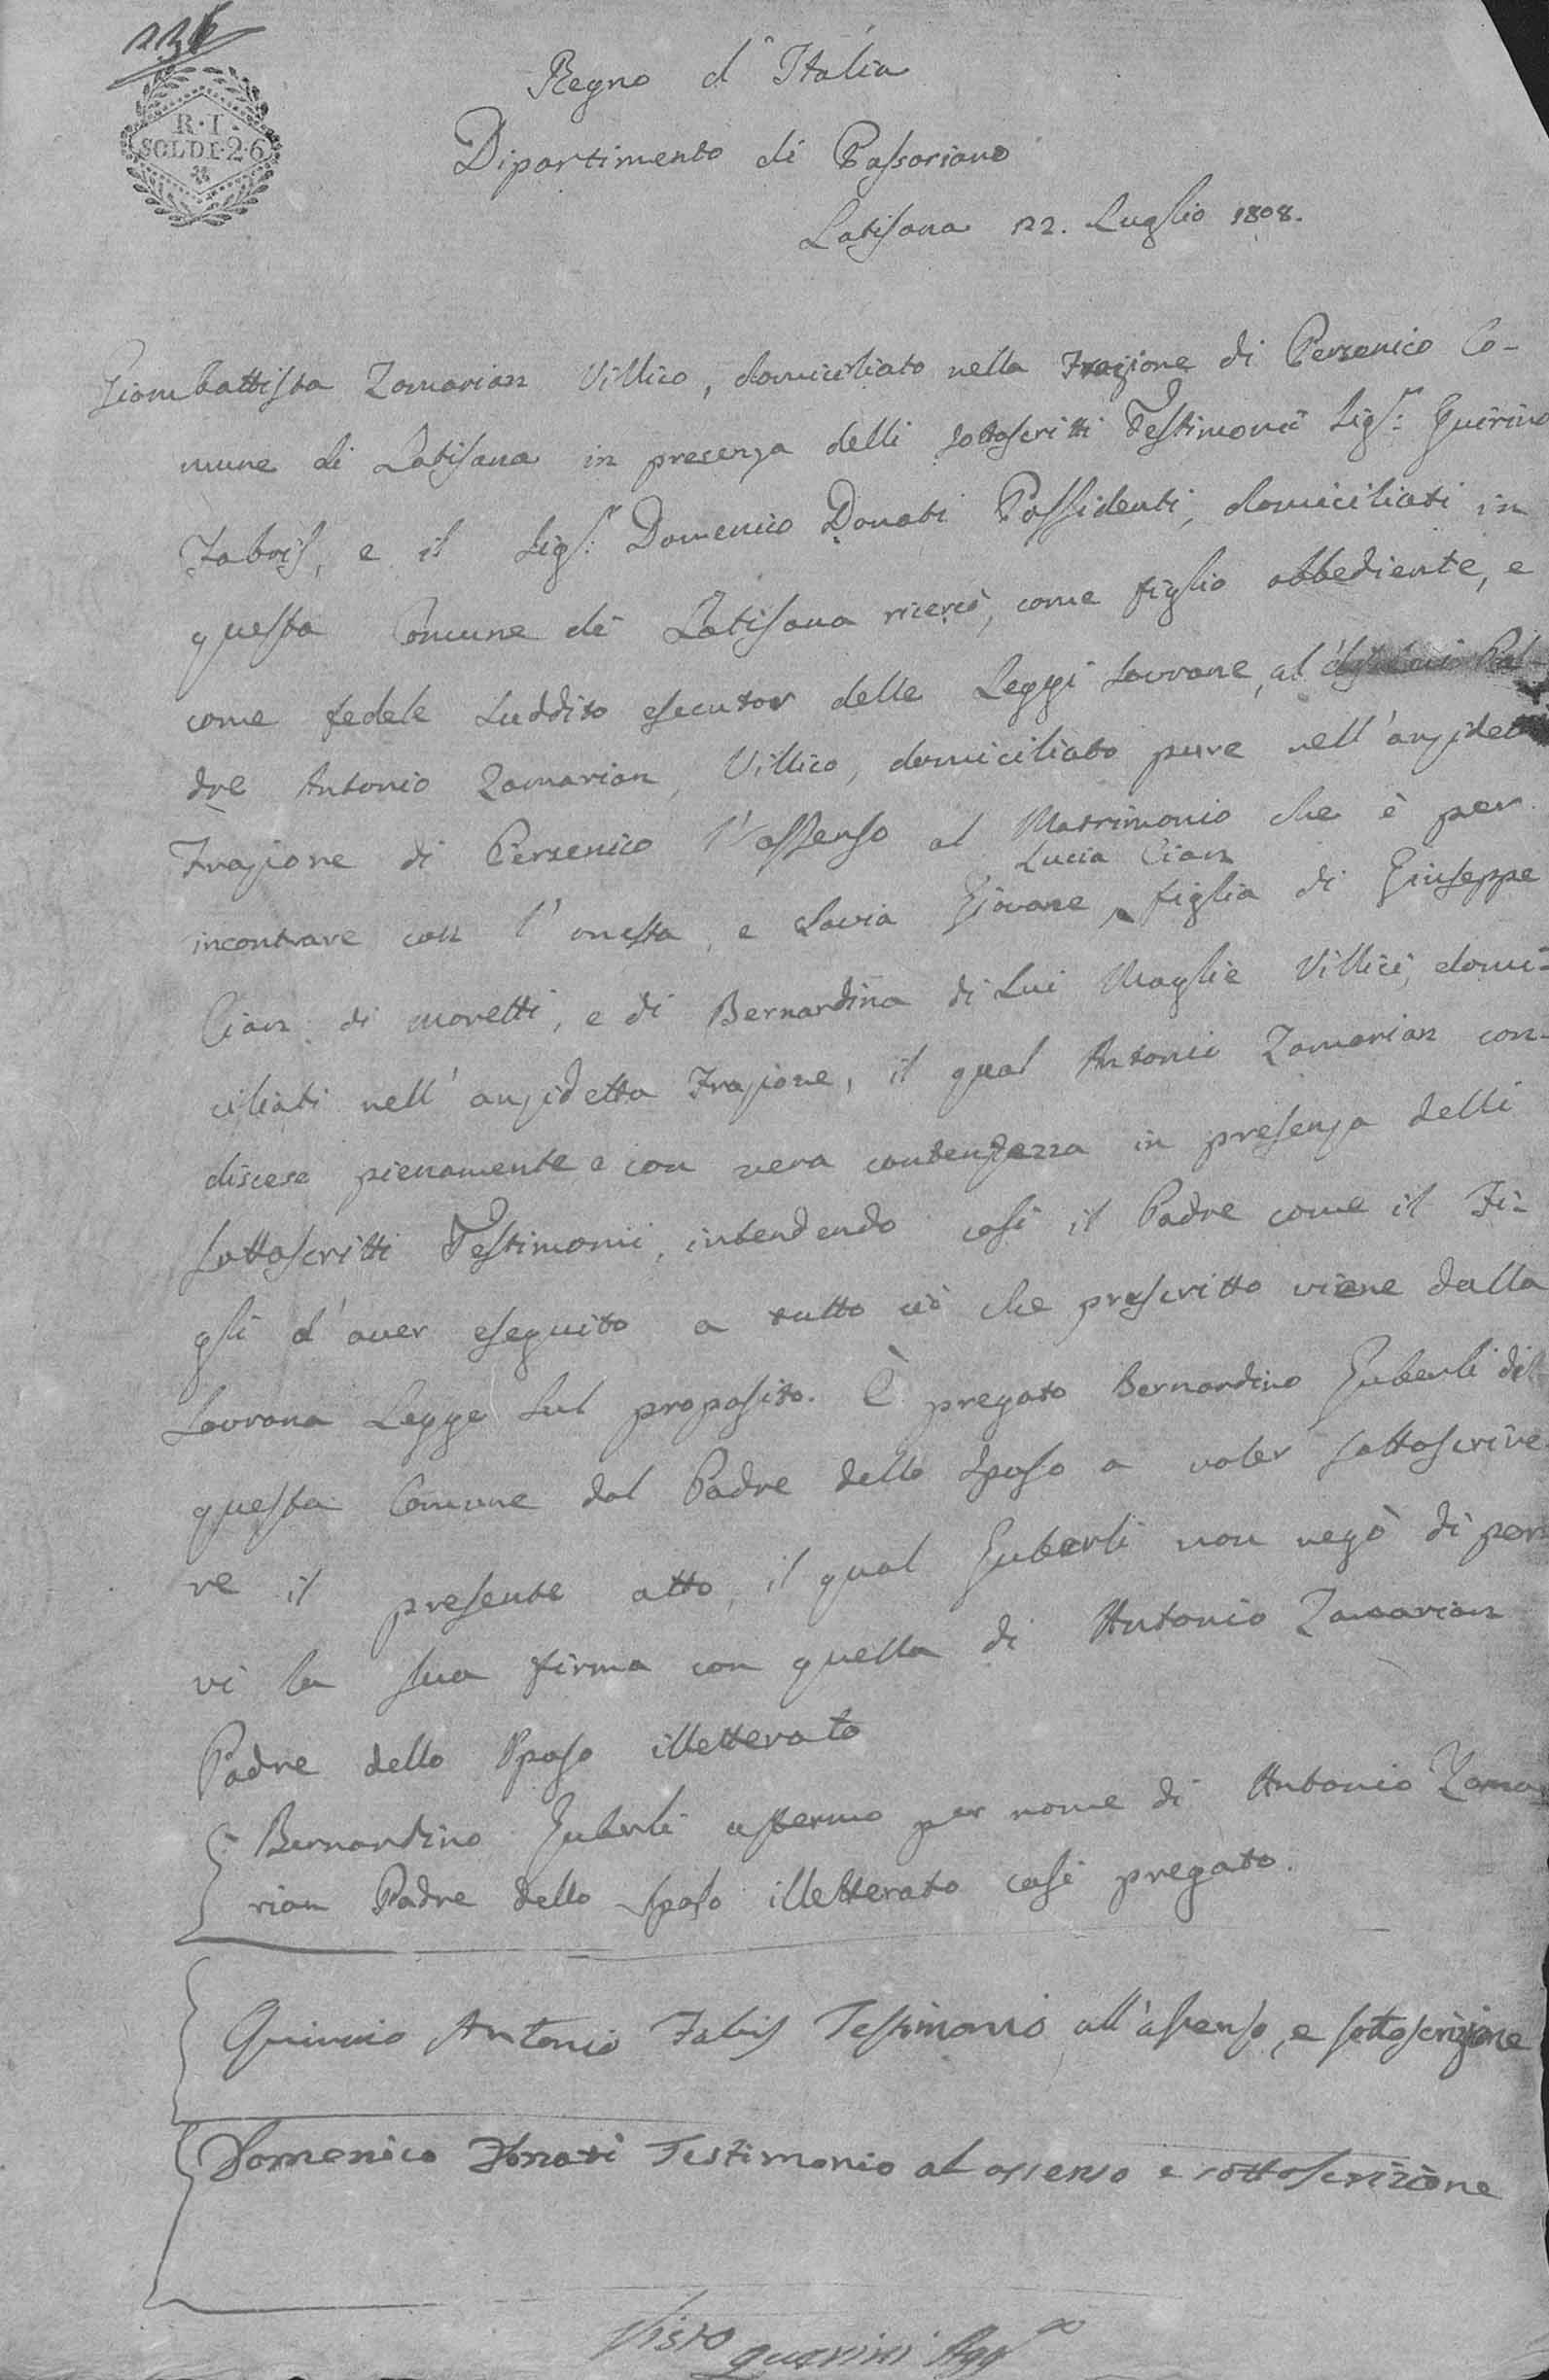 R. I.
SOLDI.2.6
Regno d'Italia
Dipartimento di Passariano
Latisana 22. Luglio 1808.
Giambattista Zamarian Villico, domiciliato nella Frazione di Persenico Co-
mune di Latisana in presenza delli sottoscritti Testimonii Sigr: Quirino
Fabris, e il Sigr: Domenico Donati Possidenti, domiciliati in
questa Comune di Latisana ricercò, come figlio obbediente, e
come fedele Suddito esecutor delle Leggi Sovrane, al Pa-
dre Antonio Zamarian, Villico, domiciliato pure nell'anzidetta
Frazione di Persenico l'assenso al Matrimonio che è per
Lucia Cian
incontrare con l'onesta, e Savia Giovane figlia di Giuseppe
Cian di moretti, e di Bernardina di Lui Moglie Villici, domi-
ciliati nell'anzidetta Frazione, il qual Antonio Zamarian con-
discese pienamente e con vera contentezza in presenza delli
sottoscritti Testimonii, intendendo così il Padre come il Fi-
glio d'aver eseguito a tutto ciò che prescritto viene dalla
Sovrana Legge Sul proposito. È pregato Bernardino Guberli di
questa Comune dal Padre dello Sposo a voler sottoscrive-
re il presente atto, il qual Guberli non negò di por-
vi la sua firma con quella di Antonio Zamarian
Padre dello Sposo illetterato
Bernardino Guberli affermo per nome di Antonio Zama-
rian Padre dello Sposo illetterato così pregato.
Quirino Antonio Fabris Testimonio all'assenso, e sottoscrizione
Domenico Donati Testimonio al assenso e sottoscrizione
Visto